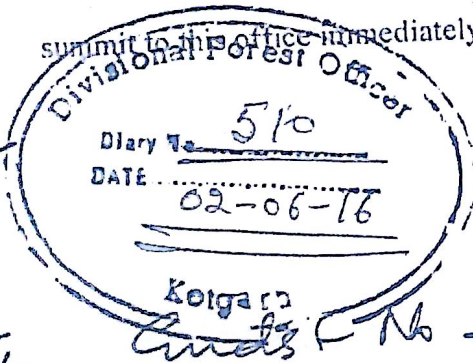 summit to this office immediately
Divisional Forest Officer
Diary No 510
DATE 02-06-16
Kotgarh
No